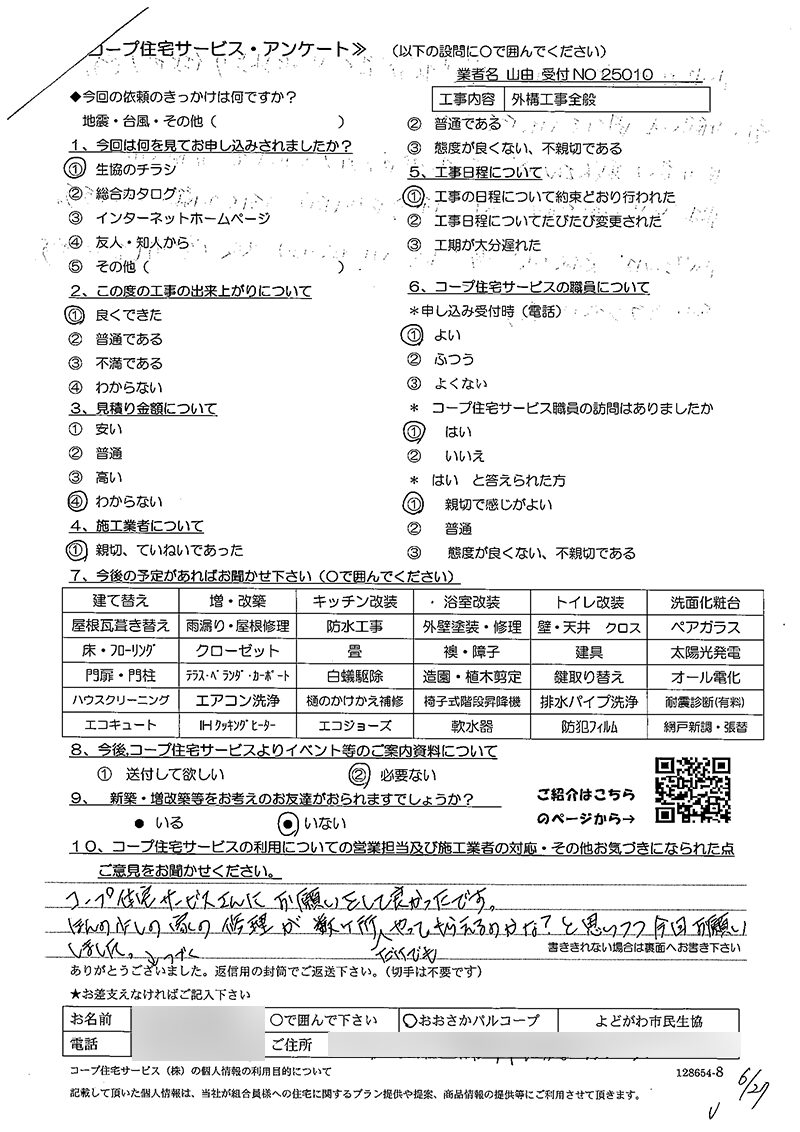 コープ住宅サービス・アンケート≫ (以下の設問に〇で囲んでください)
業者名 山由 受付NO 25010
工事内容 外構工事全般
◆今回の依頼のきっかけは何ですか?
地震・台風・その他( )
1、今回は何を見てお申し込みされましたか?
① 生協のチラシ
② 総合カタログ
③ インターネットホームページ
④ 友人・知人から
⑤ その他( )
2、この度の工事の出来上がりについて
① 良くできた
② 普通である
③ 不満である
④ わからない
3、見積り金額について
① 安い
② 普通
③ 高い
④ わからない
4、施工業者について
① 親切、ていねいであった
② 普通である
③ 態度が良くない、不親切である
5、工事日程について
① 工事の日程について約束どおり行われた
② 工事日程についてたびたび変更された
③ 工期が大分遅れた
6、コープ住宅サービスの職員について
*申し込み受付時(電話)
① よい
② ふつう
③ よくない
* コープ住宅サービス職員の訪問はありましたか
① はい
② いいえ
* はい と答えられた方
① 親切で感じがよい
② 普通
③ 態度が良くない、不親切である
7、今後の予定があればお聞かせ下さい(〇で囲んでください)
建て替え 増・改築 キッチン改装 ・浴室改装 トイレ改装 洗面化粧台
屋根瓦葺き替え 雨漏り・屋根修理 防水工事 外壁塗装・修理 壁・天井 クロス ペアガラス
床・フローリング クローゼット 畳 襖・障子 建具 太陽光発電
門扉・門柱 テラス・ベランダ・カーポート 白蟻駆除 造園・植木剪定 鍵取り替え オール電化
ハウスクリーニング エアコン洗浄 樋のかけかえ補修 椅子式階段昇降機 排水パイプ洗浄 耐震診断(有料)
エコキュート IHクッキングヒーター エコジョーズ 軟水器 防犯フィルム 網戸新調・張替
8、今後,コープ住宅サービスよりイベント等のご案内資料について
① 送付して欲しい ② 必要ない
9、 新築・増改築等をお考えのお友達がおられますでしょうか?
● いる ● いない
ご紹介はこちら
のページから→
10、コープ住宅サービスの利用についての営業担当及び施工業者の対応・その他お気づきになられた点
ご意見をお聞かせください。
コープ住宅サービスさんにお願いをして良かったです。
ほんの少しの家の修理が数ヶ所やってもらえるのかな?と思いつつ今回お願い
だけでも
しました。→つづく
書ききれない場合は裏面へお書き下さい
ありがとうございました。返信用の封筒でご返送下さい。(切手は不要です)
★お差支えなければご記入下さい
お名前 〇で囲んで下さい 〇おおさかパルコープ よどがわ市民生協
電話 ご住所
コープ住宅サービス(株)の個人情報の利用目的について
128654-8
6/27
記載して頂いた個人情報は、当社が組合員様への住宅に関するプラン提供や提案、商品情報の提供等にご利用させて頂きます。